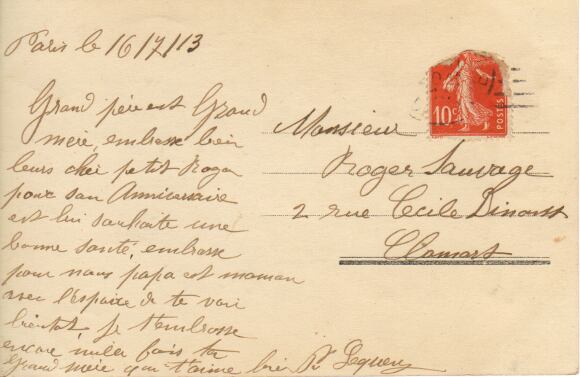 Paris le 16/7/13
Grand père est Grand
mère, embrasse bien
leurs cher petit Roger
pour son Anniversaire
est lui souhaite une
bonne santé, embrasse
pour nous papa est maman
avec l'espoire de te voir
bientôt, je t'embrasse
encore mille fois ta
Grand mère qui t'aime bien
Monsieur
Roger Sauvage
2 rue Cécile Dinant
Clamart
10c
POSTES